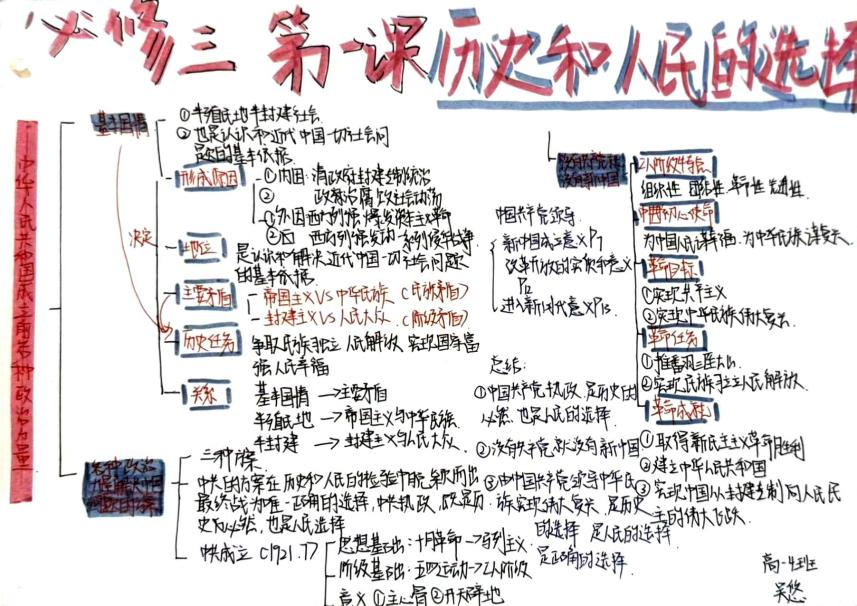 必修三 第一课 历史和人民的选择
中华人民共和国成立前各种政治力量
基本国情
①半殖民地半封建社会
②也是认识和近代中国一切社会问
题的基本依据
决定
形成原因
①内因：清政府封建专制统治
②政教治腐败社会动荡
①外因西方列强
②因 西方列强发动一系列侵华战争
地位
是认识和解决近代中国一切社会问题
的基本依据
主要矛盾
帝国主义VS中华民族（民族矛盾）
封建主义VS人民大众（阶级矛盾）
历史任务
争取民族独立 人民解放 实现国家富
强人民幸福
关系
基本国情 → 主要矛盾
半殖民地 → 帝国主义与中华民族
半封建 → 封建主义与人民大众
各种政治
力量解决中国
问题的方案
三种方案
中共的方案在历史和人民的检验中脱颖而出
最终成为唯一正确的选择，中共执政，既是历
史的必然，也是人民选择
中共成立（1921.7）
思想基础：十月革命→马列主义
阶级基础：五四运动→工人阶级
意义 ①主心骨 ②开天辟地
中国共产党领导
新中国成立意义P7
改革开放的实质和意义
P12
进入新时代意义P13
总结：
①中国共产党执政，是历史的
必然，也是人民的选择
②没有共产党就没有新中国
③由中国共产党领导中华民
族实现伟大复兴，是历史
的选择 是人民的选择
是正确的选择
没有共产党
没有新中国
工人阶级特点
组织性 团结性 革命性 先进性
中国初心使命
为中国人民谋幸福，为中华民族谋复兴
革命目标
①实现共产主义
②实现中华民族伟大复兴
革命任务
①推翻三座大山
②实现民族独立人民解放
革命成就
①取得新民主主义革命胜利
②建立中华人民共和国
③实现中国从封建专制向人民民
主的伟大飞跃
高一4班
吴悠